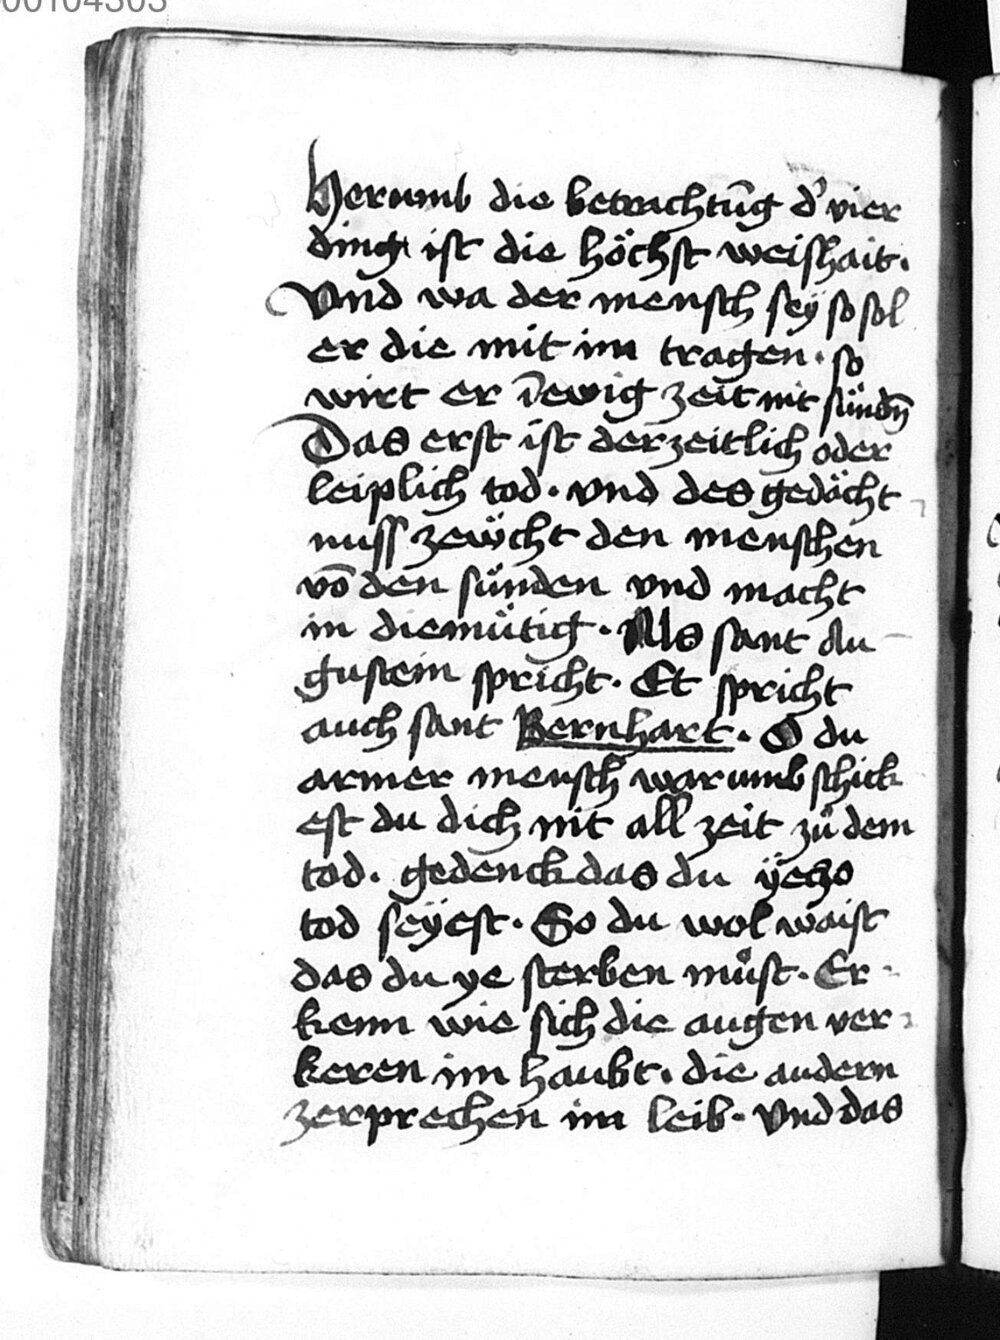 00104303
Herumb die betrachtūg d' vier
ding ist die höchst weishait.
Und wa der mensch sey so sol
er die mit im tragen. so
wirt er ī ewig zeit nit sündñ
Das erst ist der zeitlich oder
leiplich tod. und des gedächt
nuss zewcht den menschen
vō den sünden und macht
in diemütig. Als sant Au
gustein spricht. Et spricht
auch sant Bernhart. O du
armer mensch warumb schick
est du dich nit all zeit zů dem
tod. gedenck das du yeczo
tod seyest. So du wol waist
das du ye sterben můst. Er
kenn wie sich die augen ver
keren im haubt. die audern
zerprechen im leib. Und das